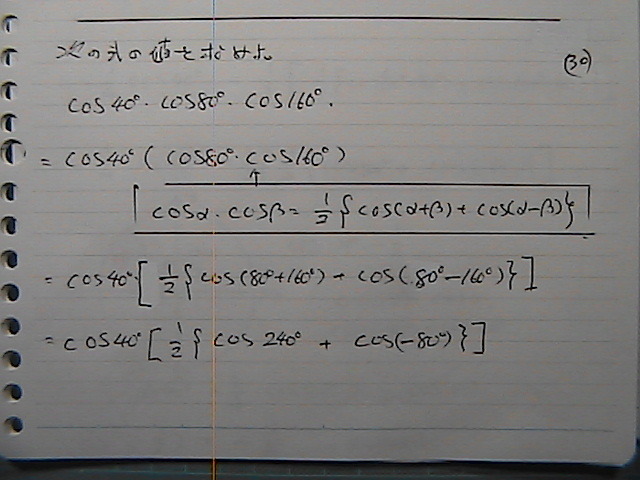 次の式の値を求めよ。 (30)
cos40°・cos80°・cos160°.
= cos40° ( cos80°・cos160° )
↑
cosα・cosβ = 1/2 { cos(α+β) + cos(α-β) }
= cos40° [ 1/2 { cos(80°+160°) + cos(80°-160°) } ]
= cos40° [ 1/2 { cos 240° + cos(-80°) } ]